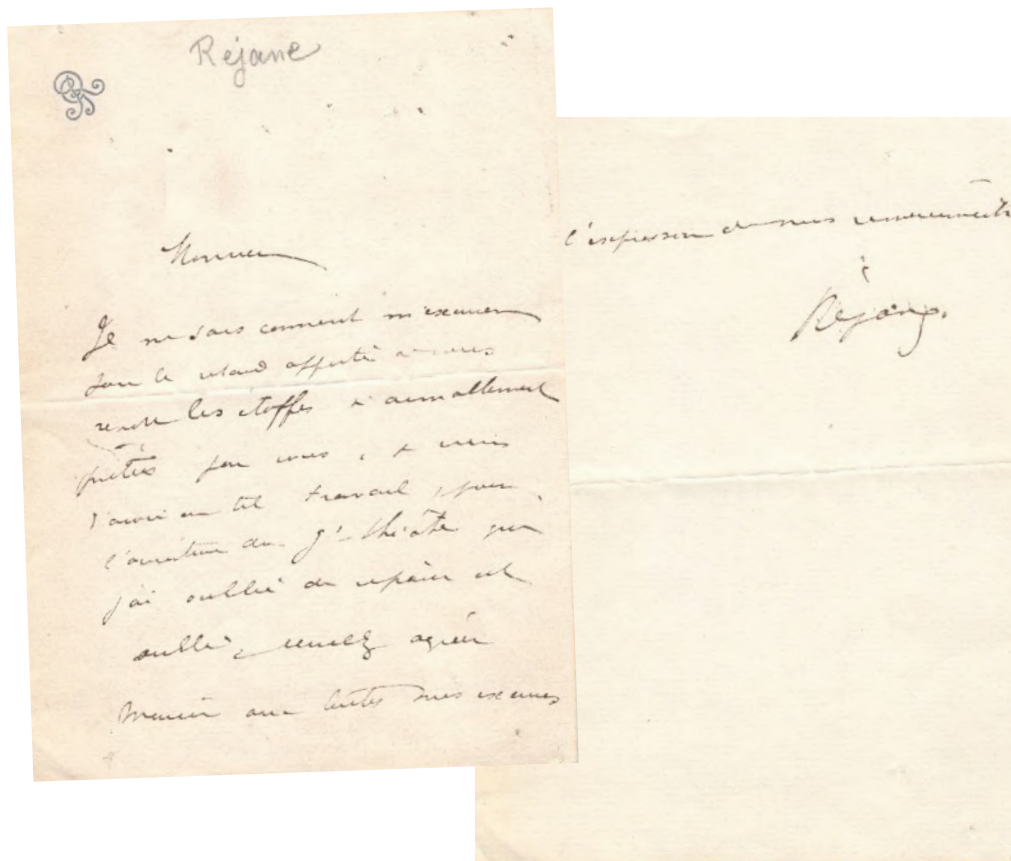 Réjane
Monsieur
Je ne sais comment m'excuser
pour le retard apporté à vous
rendre les étoffes si aimablement
prêtées par vous,
J'avais un tel travail, pour
l'ouverture du g^d théâtre que
j'ai oublié de réparer cet
oubli, veuillez agréer
Monsieur avec toutes mes excuses
l'expression de mes remerciements
Réjane.